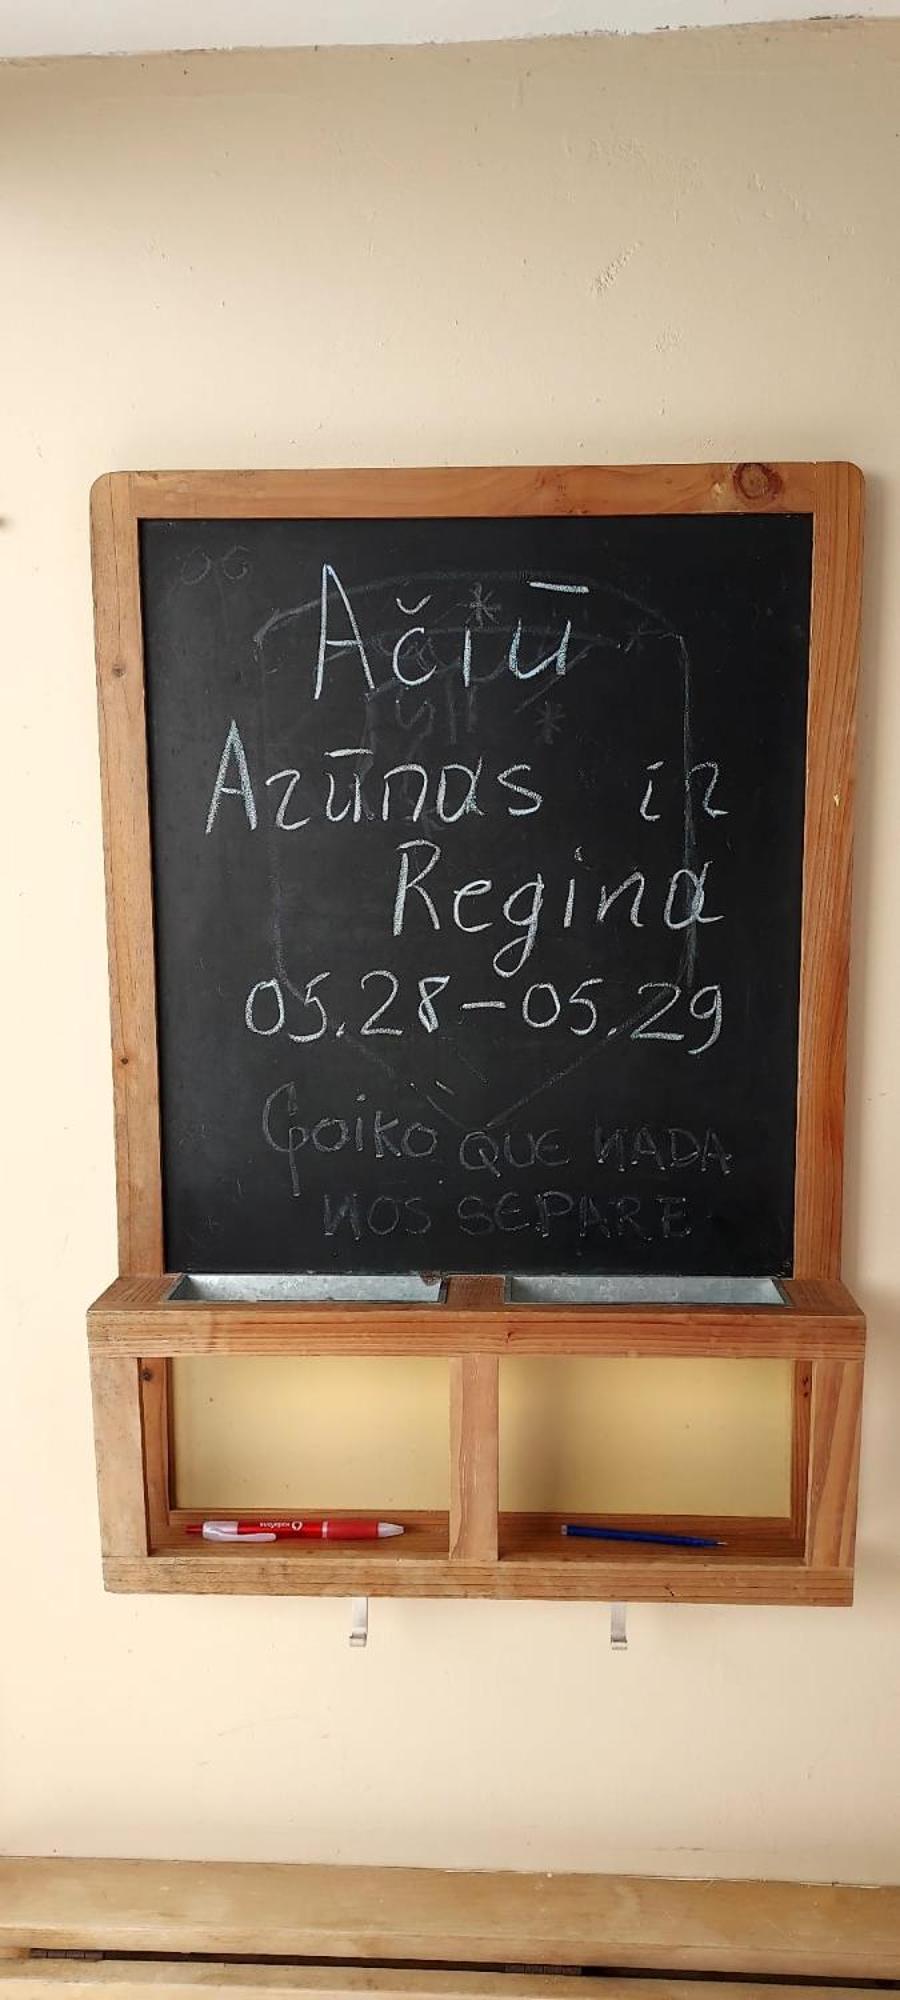 Ačiū
Arūnas ir
Regina
05.28-05.29
Goiko QUE NADA
NOS SEPARE
vodafone